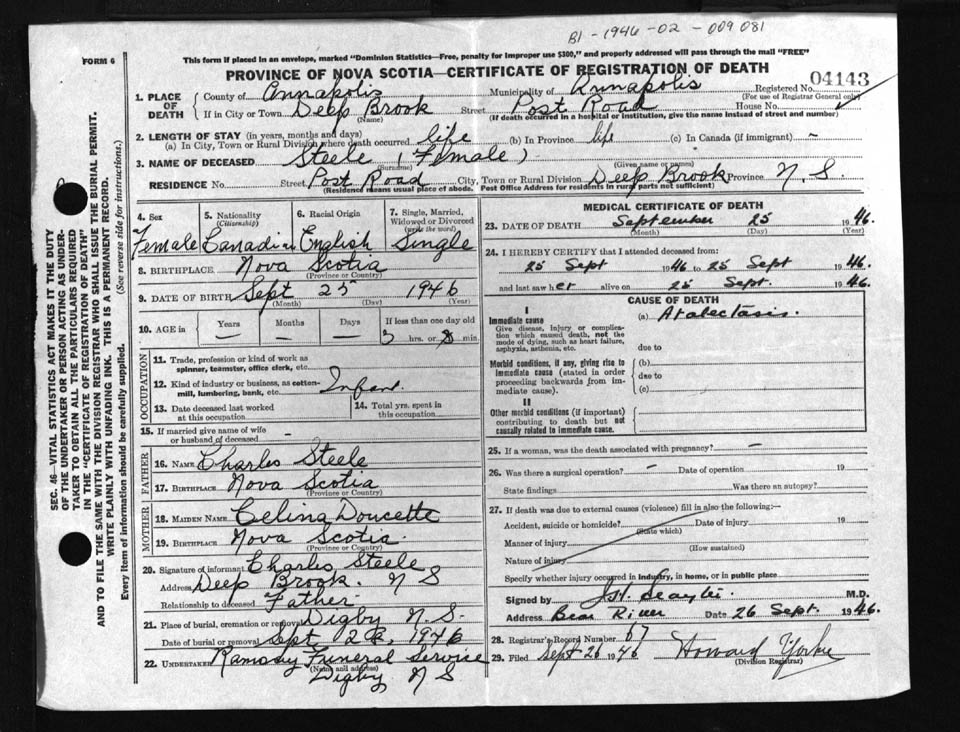 B1-1946-02-009081
This form if placed in an envelope, marked "Dominion Statistics—Free, penalty for improper use $300," and properly addressed will pass through the mail "FREE"
FORM 6
PROVINCE OF NOVA SCOTIA—CERTIFICATE OF REGISTRATION OF DEATH
04143
1. PLACE OF DEATH County of Annapolis Municipality of Annapolis Registered No.
(For use of Registrar General only)
If in City or Town Deep Brook Street Post Road House No.
(Name) (If death occurred in a hospital or institution, give the name instead of street and number)
2. LENGTH OF STAY (in years, months and days)
(a) In City, Town or Rural Division where death occurred life (b) In Province life (c) In Canada (if immigrant) –
3. NAME OF DECEASED Steele (Female)
(Surname) (Given name or names)
RESIDENCE No. Street Post Road City, Town or Rural Division Deep Brook Province N.S.
(Residence means usual place of abode. Post Office Address for residents in rural parts not sufficient)
4. Sex 5. Nationality (Citizenship) 6. Racial Origin 7. Single, Married, Widowed or Divorced (write the word)
Female Canadian English Single
8. BIRTHPLACE Nova Scotia
(Province or Country)
9. DATE OF BIRTH Sept 25 1946
(Month) (Day) (Year)
10. AGE in Years Months Days If less than one day old
– – 3 hrs. or min.
OCCUPATION
11. Trade, profession or kind of work as spinner, teamster, office clerk, etc.
12. Kind of industry or business, as cotton-mill, lumbering, bank, etc. Infant.
13. Date deceased last worked at this occupation
14. Total yrs. spent in this occupation
15. If married give name of wife or husband of deceased –
FATHER
16. NAME Charles Steele
17. BIRTHPLACE Nova Scotia
(Province or Country)
MOTHER
18. MAIDEN NAME Celina Doucette
19. BIRTHPLACE Nova Scotia.
(Province or Country)
20. Signature of informant Charles Steele
Address Deep Brook. N S
Relationship to deceased Father
21. Place of burial, cremation or removal Digby N.S.
Date of burial or removal Sept 1946
22. UNDERTAKER Ramsay Funeral Service
(Name and address) Digby N S
MEDICAL CERTIFICATE OF DEATH
23. DATE OF DEATH September 25 1946.
(Month) (Day) (Year)
24. I HEREBY CERTIFY that I attended deceased from:
25 Sept 1946 to 25 Sept 1946.
and last saw her alive on 25 Sept. 1946.
CAUSE OF DEATH
I
Immediate cause (a) Atalectasis.
Give disease, injury or complication which caused death, not the mode of dying, such as heart failure, asphyxia, asthenia, etc.
due to
Morbid conditions, if any, giving rise to immediate cause (stated in order proceeding backwards from immediate cause).
(b)
due to
(c)
II
Other morbid conditions (if important) contributing to death but not causally related to immediate cause.
25. If a woman, was the death associated with pregnancy? –
26. Was there a surgical operation? – Date of operation 19
State findings Was there an autopsy?
27. If death was due to external causes (violence) fill in also the following:—
Accident, suicide or homicide? Date of injury 19
(State which)
Manner of injury
(How sustained)
Nature of injury
Specify whether injury occurred in industry, in home, or in public place
Signed by M.D.
Address Bear River Date 26 Sept. 1946.
28. Registrar's Record Number 67
29. Filed Sept 26 1946 Howard Yorke
(Division Registrar)
SEC. 46—VITAL STATISTICS ACT MAKES IT THE DUTY
OF THE UNDERTAKER OR PERSON ACTING AS UNDER-
TAKER TO OBTAIN ALL THE PARTICULARS REQUIRED
IN THE "CERTIFICATE OF REGISTRATION OF DEATH"
AND TO FILE THE SAME WITH THE DIVISION REGISTRAR WHO SHALL ISSUE THE BURIAL PERMIT.
WRITE PLAINLY WITH UNFADING INK. THIS IS A PERMANENT RECORD.
Every item of information should be carefully supplied. (See reverse side for instructions.)